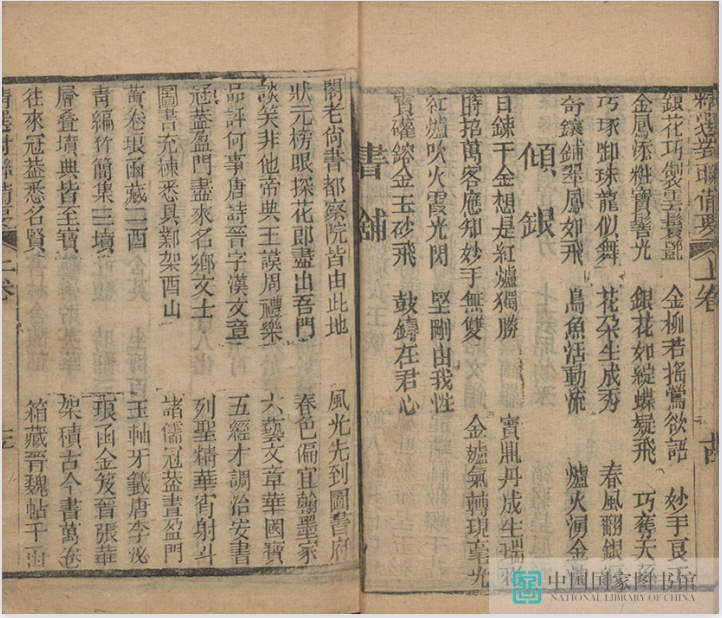 精選對聯備要 上卷
銀花巧製雲鬟艷 金柳若搖鶯欲語 妙手良工
金鳳添粧寶髻光 銀花如綻蝶疑飛 巧奪天
巧琢蜘珠龍似舞 花朵生成秀 春風翻銀
奇鑲鋪翠鳳如飛 鳥魚活動流 爐火湧金
傾銀
日鍊千金想是紅爐獨勝 寶鼎丹成生瑞彩
時招萬客應知妙手無雙 金爐氣轉現毫光
紅爐吹火霞光閃 堅剛由我性
寶礶鎔金玉砂飛 鼓鑄在君心
書鋪
閣老尚書都察院皆由此地 風光先到圖書府
狀元榜眼探花郎盡出吾門 春色偏宜翰墨家
談笑非他帝典王謨周禮樂 六藝文章華國寶
品評何事唐詩晉字漢文章 五經才調治安書
冠蓋盈門盡來名鄉文士 列聖精華宵射斗
圖書充棟悉具鄴架酉山 諸儒冠蓋書盈門
黃卷琅函藏二酉 玉軸牙籤唐李泌
青編竹簡集三墳 琅函金笈晉張華
層叠墳典皆至寶 架積古今書萬卷
往來冠蓋悉名賢 箱藏晉魏帖千
精選對聯備要 上卷
中国国家图书馆
NATIONAL LIBRARY OF CHINA